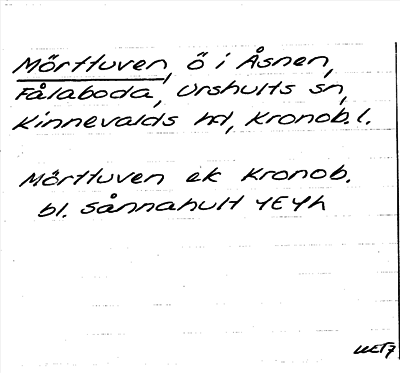 Mörtluven, ö i Åsnen,
Fålaboda, Urshults sn,
Kinnevalds hd, Kronob. l.
Mörtluven ek Kronob.
bl. Sånnahult 4E4h